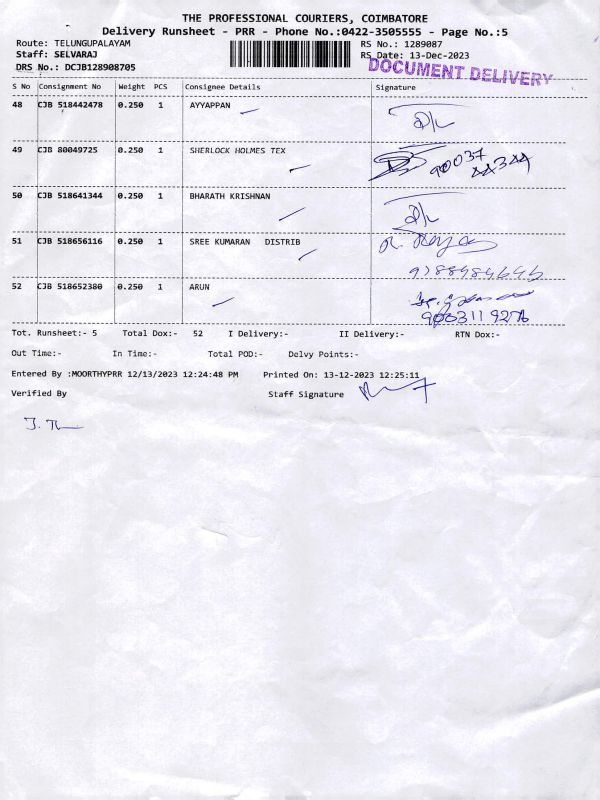 THE PROFESSIONAL COURIERS, COIMBATORE
Delivery Runsheet - PRR - Phone No.:0422-3505555 - Page No.:5
Route: TELUNGUPALAYAM RS No.: 1289087
Staff: SELVARAJ RS Date: 13-Dec-2023
DRS No.: DCJB128908705 DOCUMENT DELIVERY
S No Consignment No Weight PCS Consignee Details Signature
48 CJB 518442478 0.250 1 AYYAPPAN
49 CJB 80049725 0.250 1 SHERLOCK HOLMES TEX 90037
44344
50 CJB 518641344 0.250 1 BHARATH KRISHNAN
51 CJB 518656116 0.250 1 SREE KUMARAN DISTRIB
52 CJB 518652380 0.250 1 ARUN
9003119276
Tot. Runsheet:- 5 Total Dox:- 52 I Delivery:- II Delivery:- RTN Dox:-
Out Time:- In Time:- Total POD:- Delvy Points:-
Entered By :MOORTHYPRR 12/13/2023 12:24:48 PM Printed On: 13-12-2023 12:25:11
Verified By Staff Signature